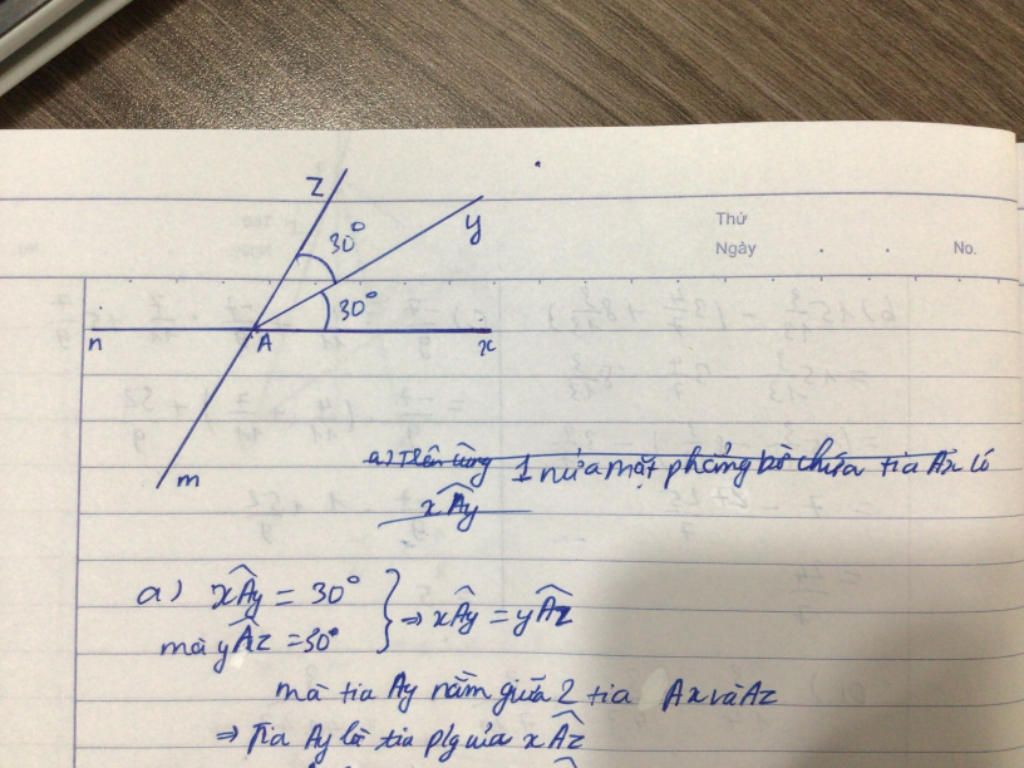 z
y
30°
30°
Thứ
Ngày
No.
n
A
x
m
a) Trên cùng 1 nửa mặt phẳng bờ chứa tia Ax có
xÂy
a) xÂy = 30°
mà yÂz = 30°
⇒ xÂy = yÂz
mà tia Ay nằm giữa 2 tia Ax và Az
⇒ Tia Ay là tia p/g của xÂz